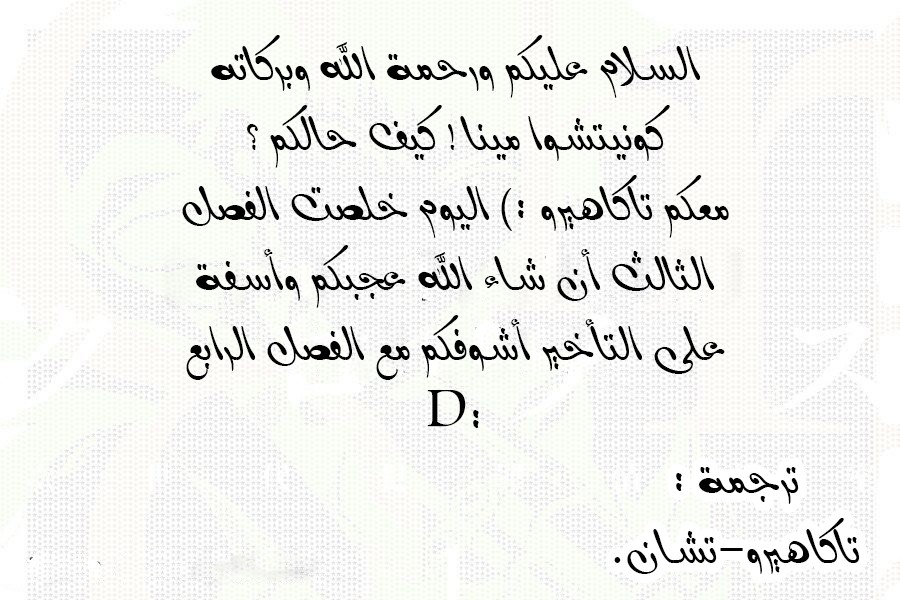 السلام عليكم ورحمة الله وبركاته
كونيتشوا مينا ! كيف حالكم ؟
معكم تاكاهيرو :) اليوم خلصت الفصل
الثالث أن شاء الله عجبكم وأسفة
على التأخير أشوفكم مع الفصل الرابع
:D
ترجمة :
تاكاهيرو-تشان.